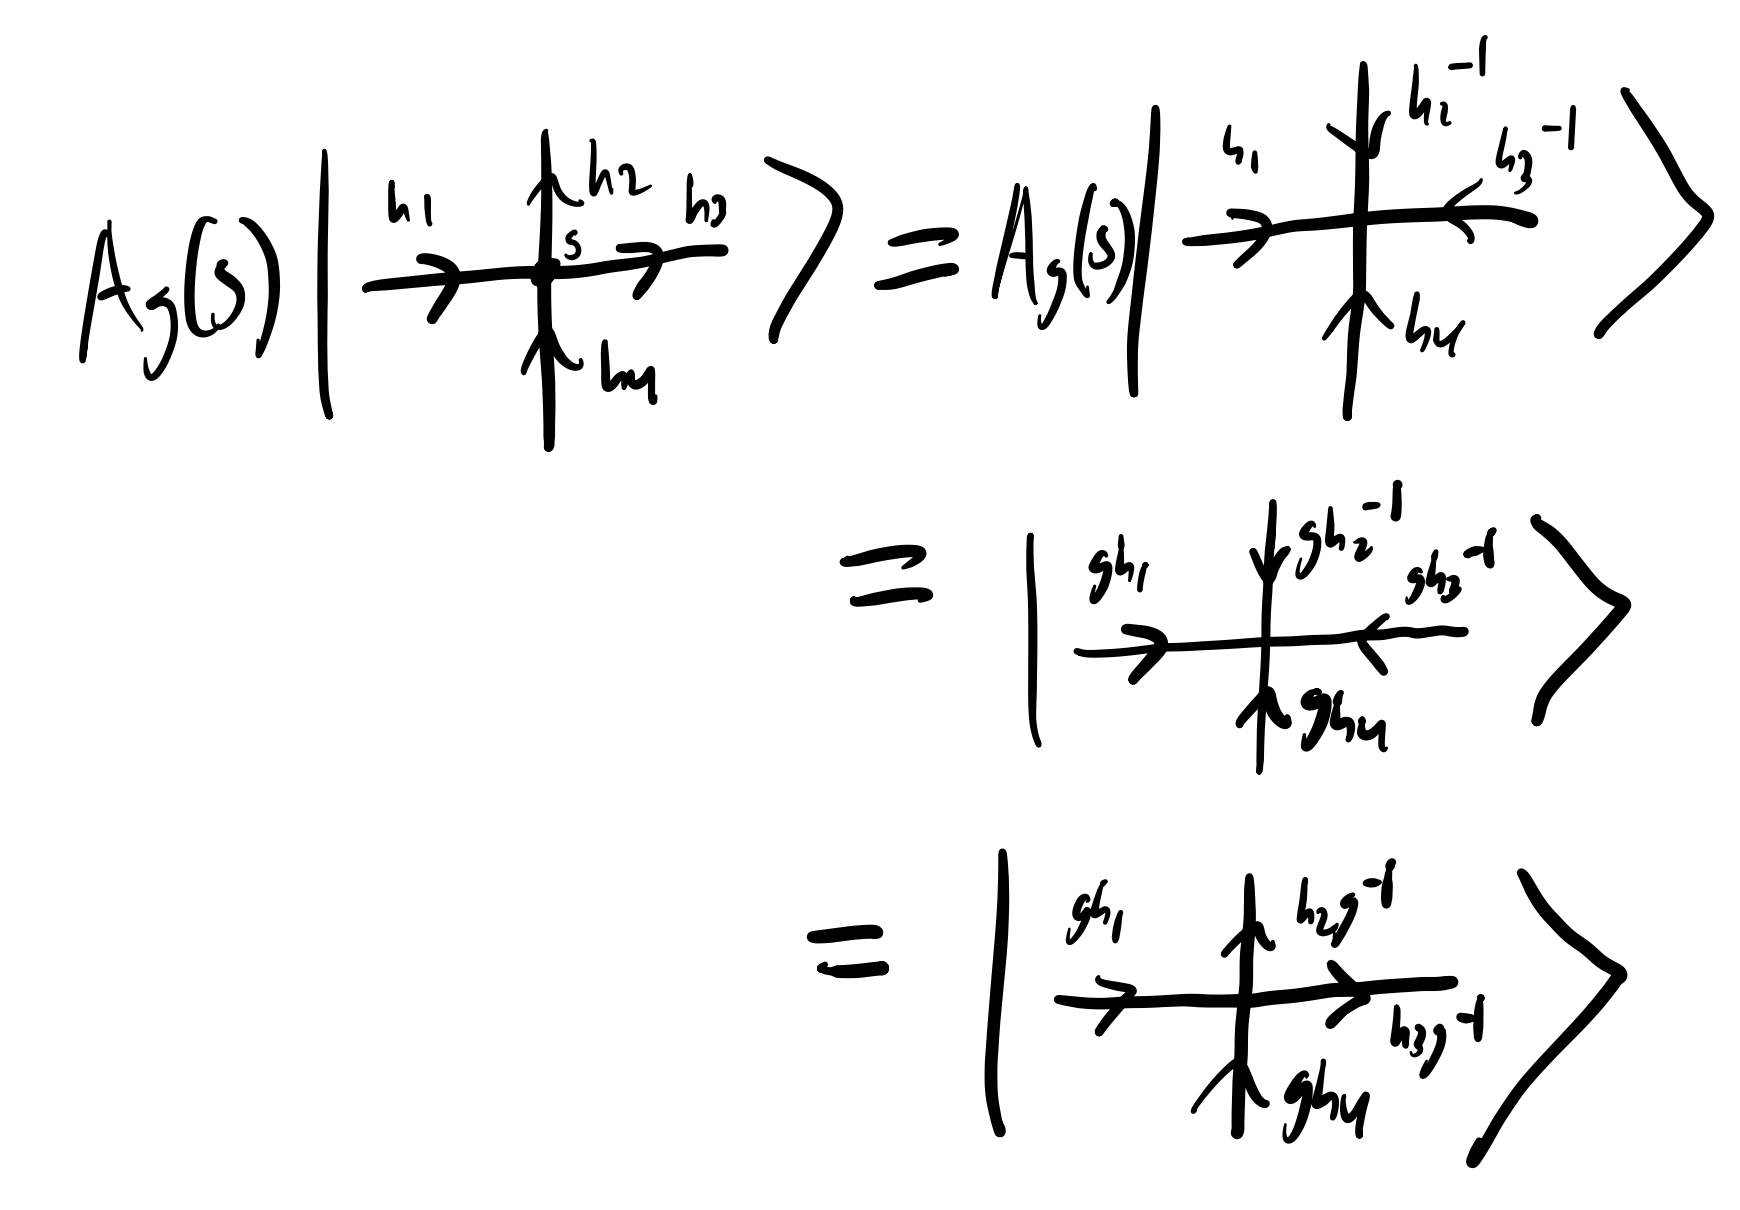 A_g(s) | h_1 h_2 h_3 s h_4 ⟩ = A_g(s) | h_1 h_2^{-1} h_3^{-1} h_4 ⟩
= | gh_1 gh_2^{-1} gh_3^{-1} gh_4 ⟩
= | gh_1 h_2g^{-1} h_3g^{-1} gh_4 ⟩